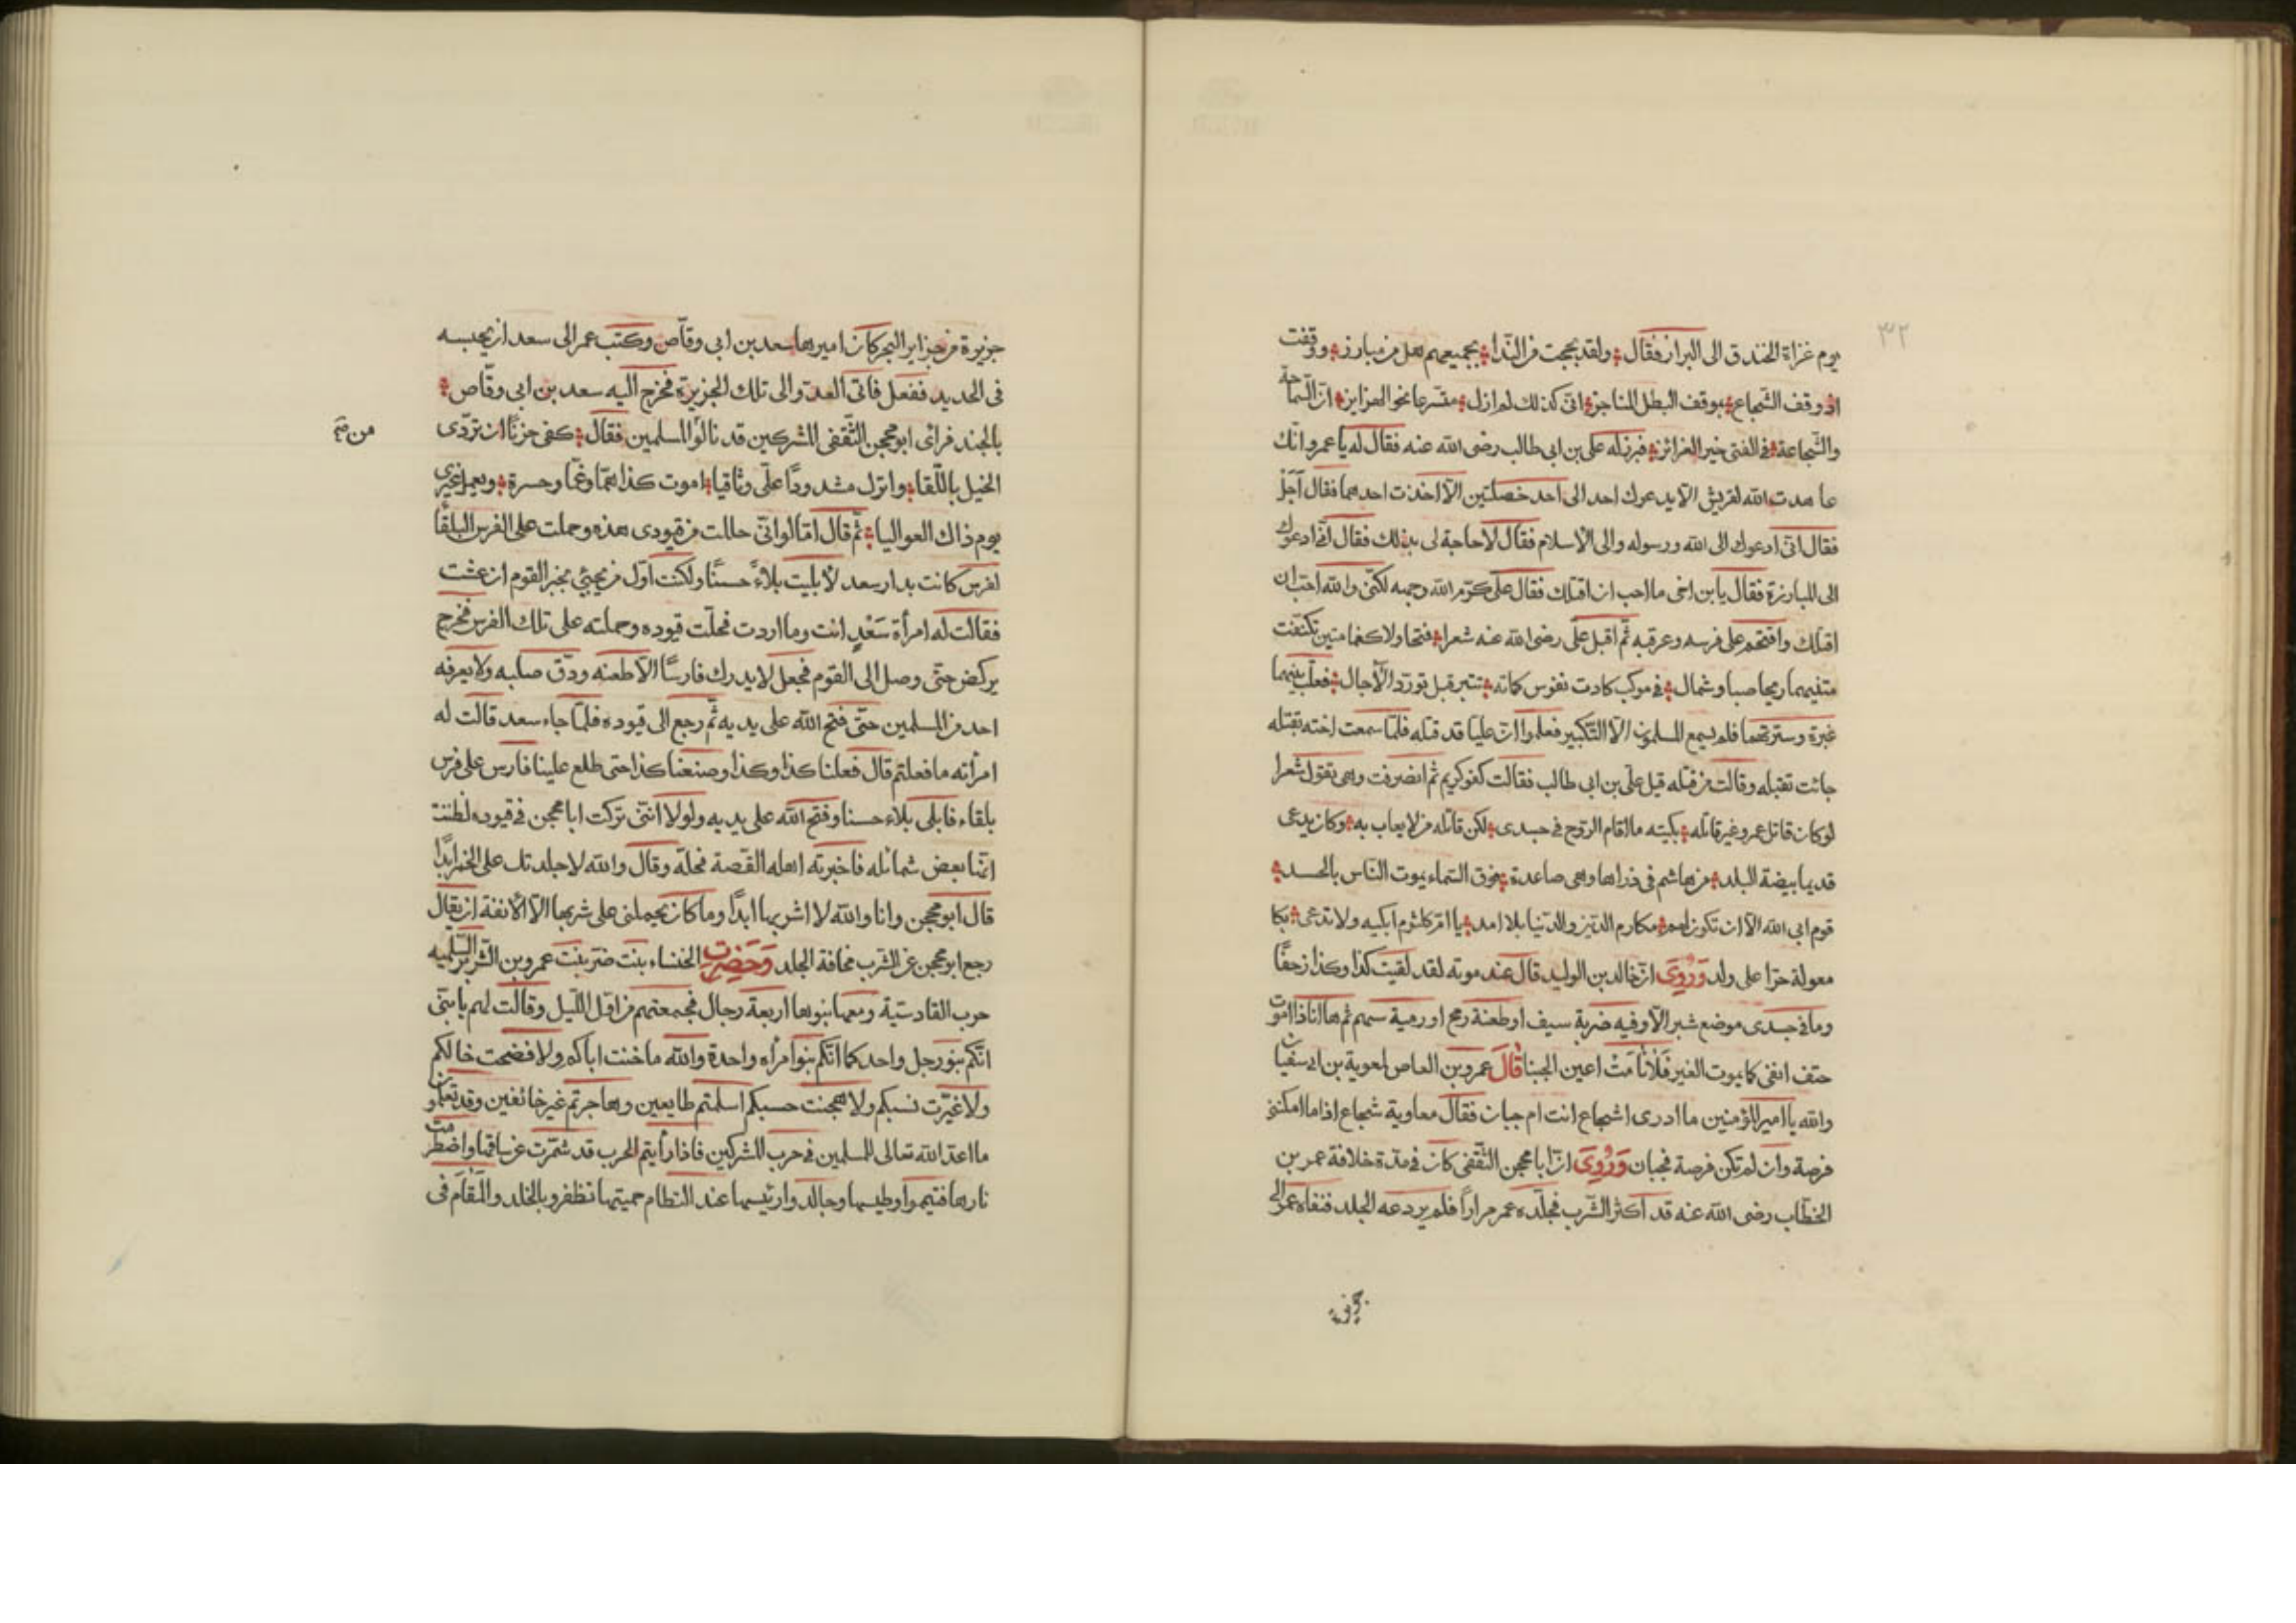 ٣٢
يوم غزاة الخندق الى البراز فقال ولقد بححت من الندا بجميعهم هل من مبارز ووقفت
اذ وقف الشجاع بموقف البطل المناجز انى كذلك لم ازل متسرعا نحو الهزاهز ان السماحة
والشجاعة فى الفتى خير الغرائز فبرز له على بن ابى طالب رضى الله عنه فقال له يا عمرو انك
عاهدت الله لقريش الا يدعوك احد الى احد خصلتين الا اخذت احدهما فقال اجل
فقال انى ادعوك الى الله ورسوله والى الاسلام فقال لا حاجة لى بذلك فقال انى ادعوك
الى المبارزة فقال يا بن اخى ما احب ان اقتلك فقال على كرم الله وجهه لكنى والله احب ان
اقتلك واقتحم على فرسه وعرقبه ثم اقبل على رضى الله عنه شعرا فتحاولا كغمامتين تكنفت
متنيهما ريحا صبا وشمال فى موكب كادت نفوس كماته تبتز قبل تورد الآجال فعلت بينهما
غبرة وسترتهما فلم يسمع المسلمون الا التكبير فعلموا ان عليا قد قتله فلما سمعت اخته بقتله
جائت تقبله وقالت من قتله قيل على بن ابى طالب فقالت كفو كريم ثم انصرفت وهى تقول شعرا
لو كان قاتل عمرو غير قاتله بكيته ما اقام الروح فى جسدى لكن قاتله من لا يعاب به وكان يدعى
قديما بيضة البلد من هاشم فى ذراها وهى صاعدة فوق السماء يموت الناس بالحسد
قوم ابى الله الا ان تكون لهم مكارم الدين والدنيا بلا امد يا ام كلثوم ابكيه ولا تدعى بكا
معولة حرا على ولد وروى ان خالد بن الوليد قال عند موته لقد لقيت كذا وكذا زحفا
وما فى جسدى موضع شبر الا وفيه ضربة سيف او طعنة رمح او رمية سهم ثم ها انا ذا اموت
حتف انفى كما يموت العير فلا نامت اعين الجبنا قال عمرو بن العاص لمعوية بن ابى سفيان
والله يا امير المؤمنين ما ادرى اشجاع انت ام جبان فقال معاوية شجاع اذا ما امكنتنى
فرصة وان لم تكن فرصة فجبان وروى ان ابا محجن الثقفى كان فى مدة خلافة عمر بن
الخطاب رضى الله عنه قد اكثر الشرب فجلده عمر مرارا فلم يردعه الجلد فنفاه عمر الى
جزيرة
جزيرة من جزاير البحر كان اميرها سعد بن ابى وقاص وكتب عمر الى سعد ان يحبسه
فى الحديد ففعل فاتى العدو الى تلك الجزيرة فخرج اليه سعد بن ابى وقاص
بالجند فرأى ابو محجن الثقفى المشركين قد نالوا المسلمين فقال كفى حزنا ان تردى
الخيل باللقا واترك مشدودا على وثاقيا اموت كذا هما وغما وحسرة ويعمل غيرى
يوم ذاك العواليا ثم قال اما لو انى حللت من قيودى هذه وحملت على الفرس البلقا
لفرس كانت بدار سعد لأبليت بلاء حسنا ولكنت اول من يجئ بخبر القوم ان عشت
فقالت له امرأة سعد انت وما اردت فحلت قيوده وحملته على تلك الفرس فخرج
يركض حتى وصل الى القوم فجعل لا يدرك فارسا الا طعنه ودق صلبه ولا يعرفه
احد من المسلمين حتى فتح الله على يديه ثم رجع الى قيوده فلما جاء سعد قالت له
امرأته ما فعلتم قال فعلنا كذا وكذا وصنعنا كذا حتى طلع علينا فارس على فرس
بلقاء فابلى بلاء حسنا وفتح الله على يديه ولولا اننى تركت ابا محجن فى قيوده لظننت
انها بعض شمائله فاخبرته اهله القصة فحله وقال والله لا جلدتك على الخمر ابدا
قال ابو محجن وانا والله لا اشربها ابدا وما كان يحملنى على شربها الا الأنفة ان يقال
رجع ابو محجن عن الشرب مخافة الجلد وحضرت الخنساء بنت ضر بنت عمرو بن الشريد السلميه
حرب القادسية ومعها بنوها اربعة رجال فجمعتهم من اول الليل وقالت لهم يا بنى
انكم بنو رجل واحد كما انكم بنوا مرأه واحدة والله ما خنت اباكم ولا فضحت خالكم
ولا غيرت نسبكم ولا هجنت حسبكم اسلمتم طايعين وهاجرتم غير خائفين وقد تعلمون
ما اعد الله تعالى للمسلمين فى حرب المشركين فاذا رأيتم الحرب قد شمرت عن ساقها واضطرمت
نارها فتيمموا وطيسها وجالدوا رئيسها عند النظام حميتها تظفرو بالخلد والمقام فى